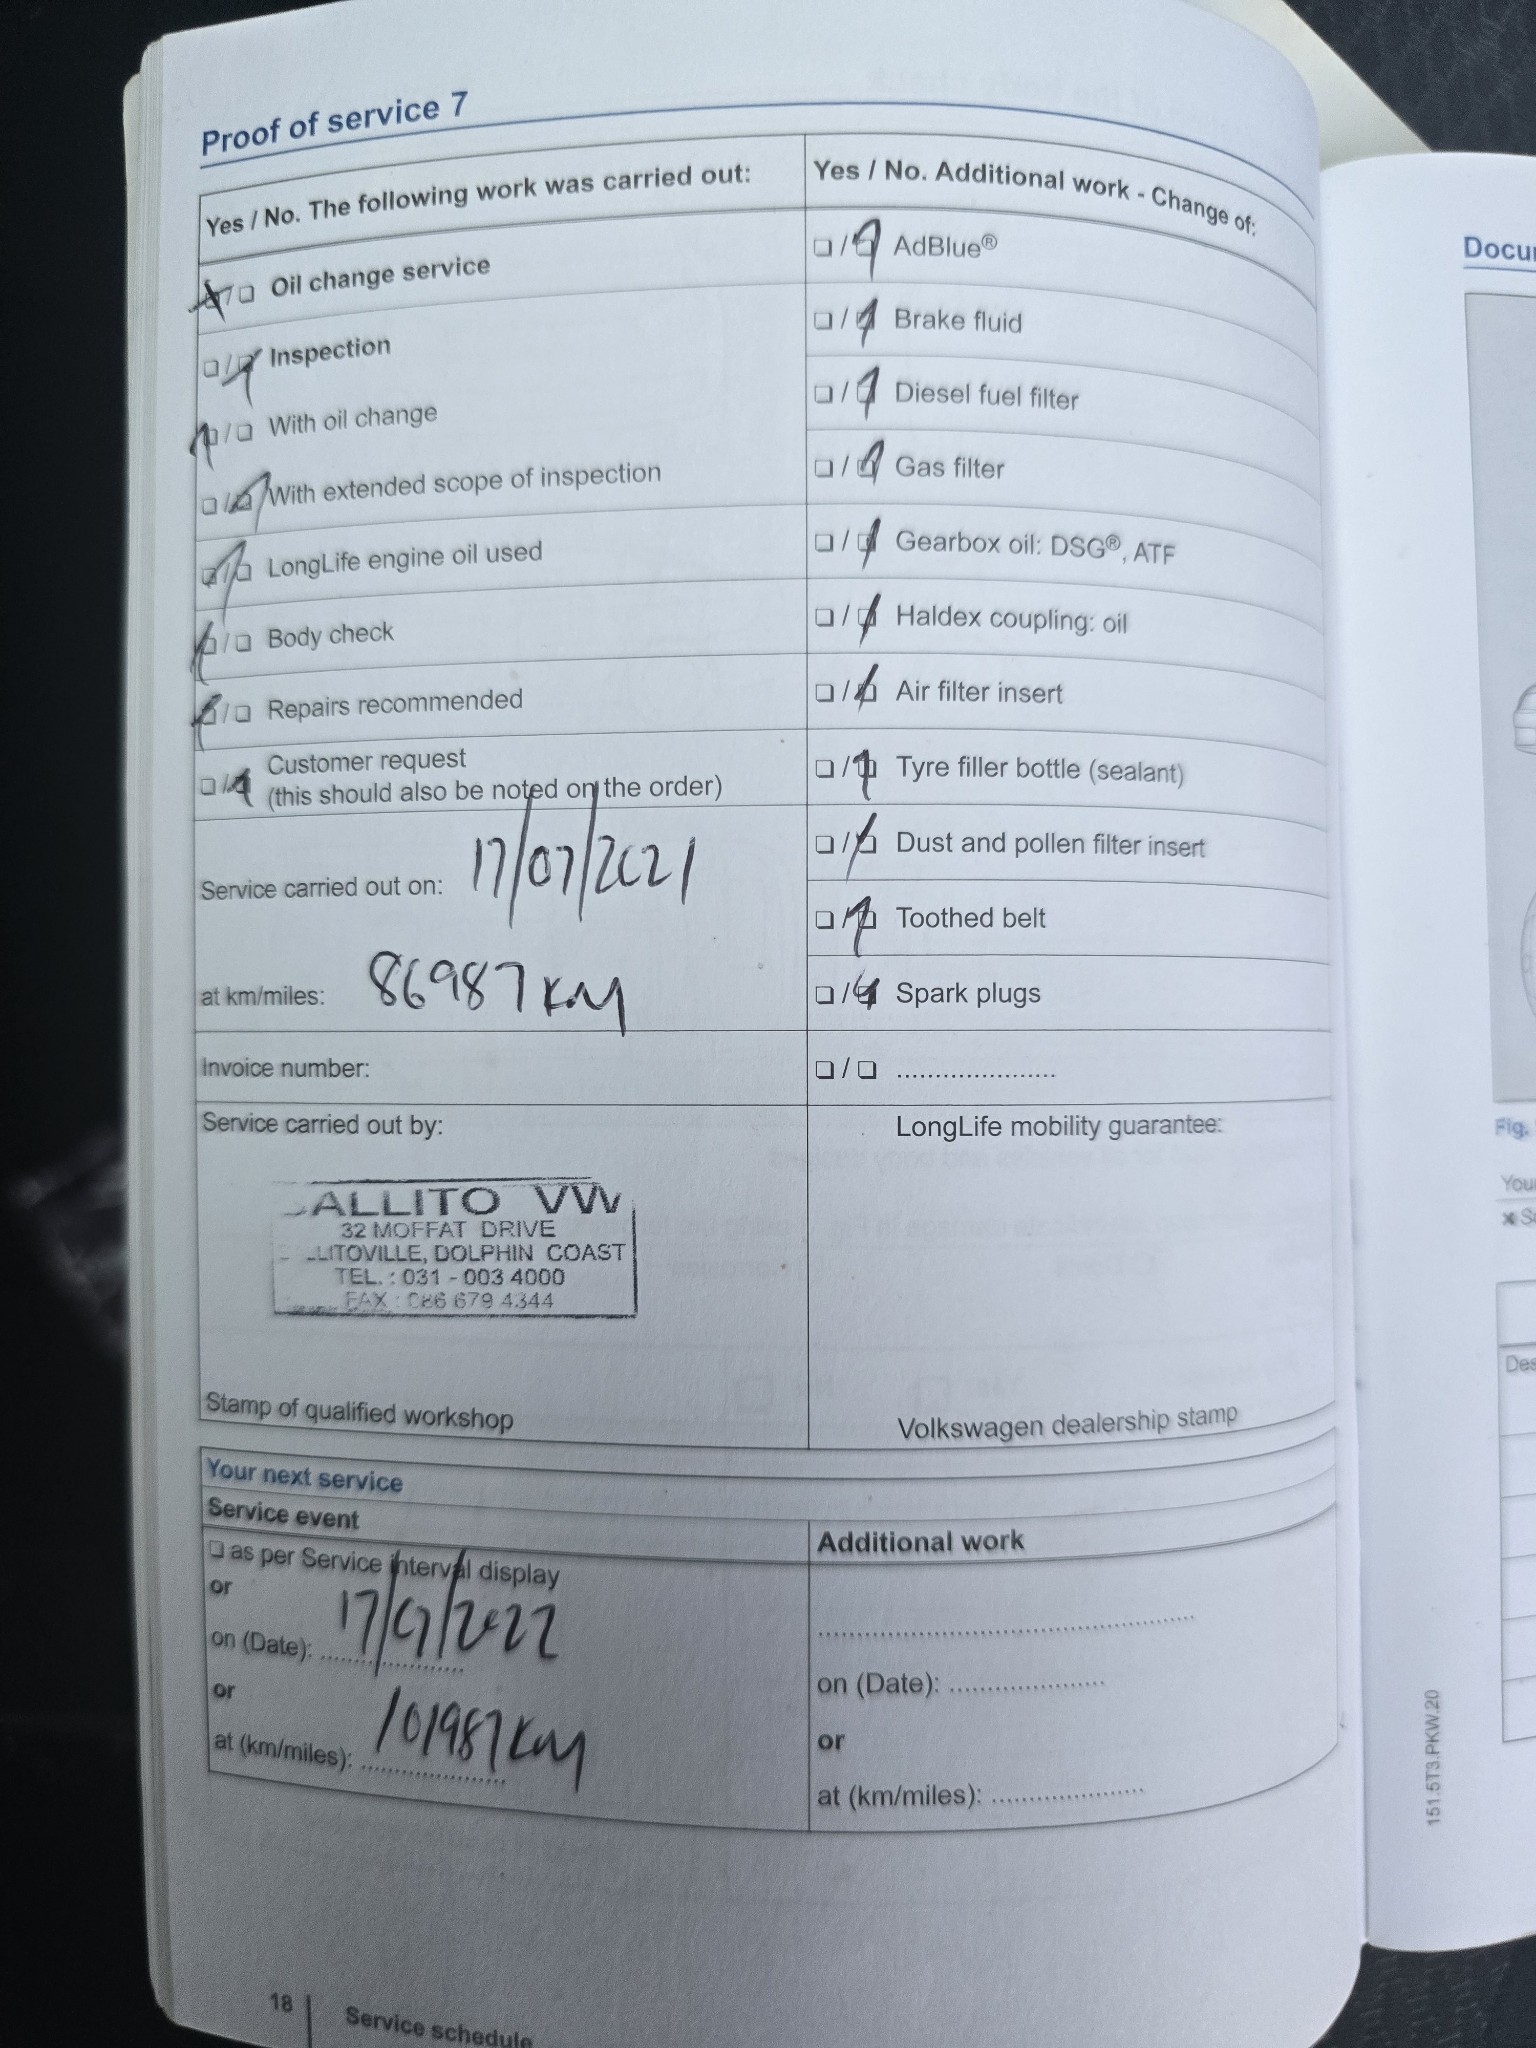 Proof of service 7
Yes / No. The following work was carried out:
Oil change service
Inspection
With oil change
With extended scope of inspection
LongLife engine oil used
Body check
Repairs recommended
Customer request
(this should also be noted on the order)
Service carried out on: 17/07/2021
at km/miles: 86987 KM
Invoice number:
Service carried out by:
ALLITO VW
32 MOFFAT DRIVE
LITOVILLE, DOLPHIN COAST
TEL. : 031 - 003 4000
FAX : 086 679 4344
Stamp of qualified workshop
Yes / No. Additional work - Change of:
AdBlue®
Brake fluid
Diesel fuel filter
Gas filter
Gearbox oil: DSG®, ATF
Haldex coupling: oil
Air filter insert
Tyre filler bottle (sealant)
Dust and pollen filter insert
Toothed belt
Spark plugs
LongLife mobility guarantee:
Volkswagen dealership stamp
Your next service
Service event
as per Service interval display
or
on (Date): 17/07/2022
or
at (km/miles): 101987 KM
Additional work
on (Date):
or
at (km/miles):
18 Service schedule
151.5T3.PKW.20
Fig.